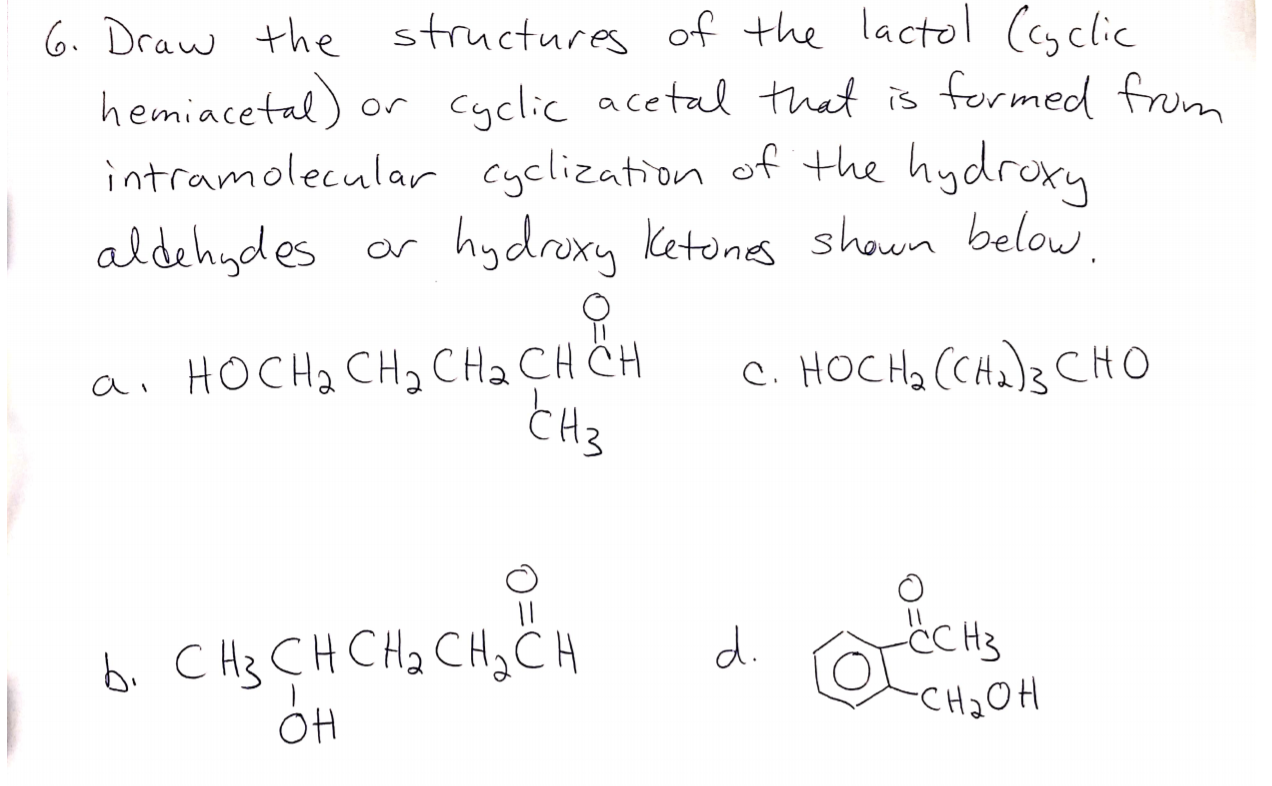 6. Draw the structures of the lactol (cyclic
hemiacetal) or cyclic acetal that is formed from
intramolecular cyclization of the hydroxy
aldehydes or hydroxy ketones shown below.
O
||
a. HOCH₂CH₂CH₂CHCH
CH₃
c. HOCH₂(CH₂)₃CHO
O
||
b. CH₃CHCH₂CH₂CH
OH
O
||
d. CCH₃
CH₂OH